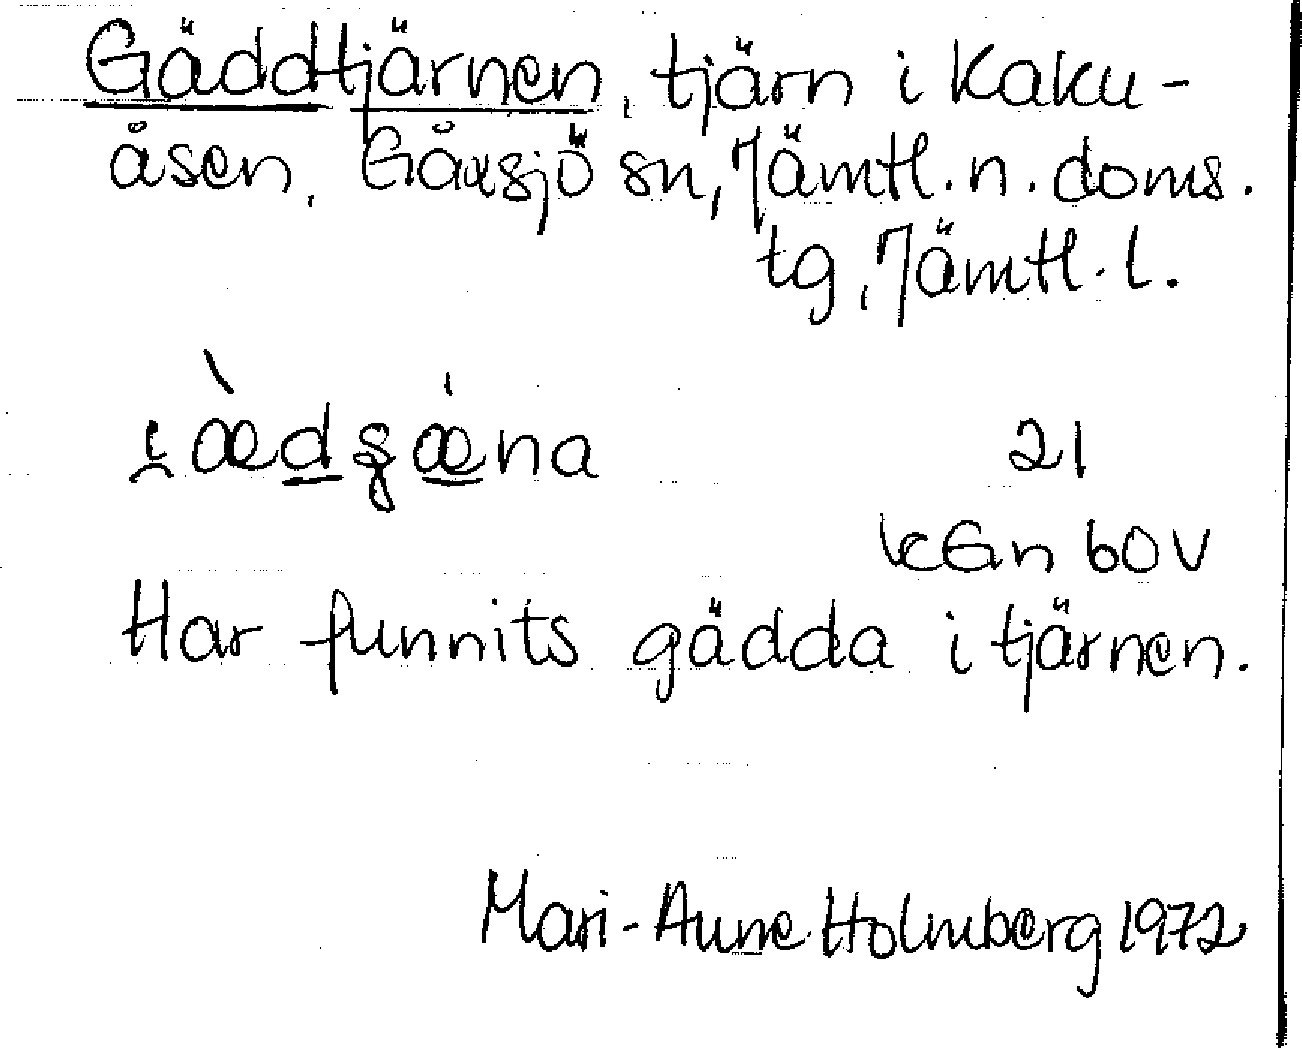 Gäddtjärnen, tjärn i Kaku-
åsen, Gåxsjö sn, Jämtl. n. doms.
tg, Jämtl. l.
21
kGn 60V
Har funnits gädda i tjärnen.
Mari-Anne Holmberg 1972